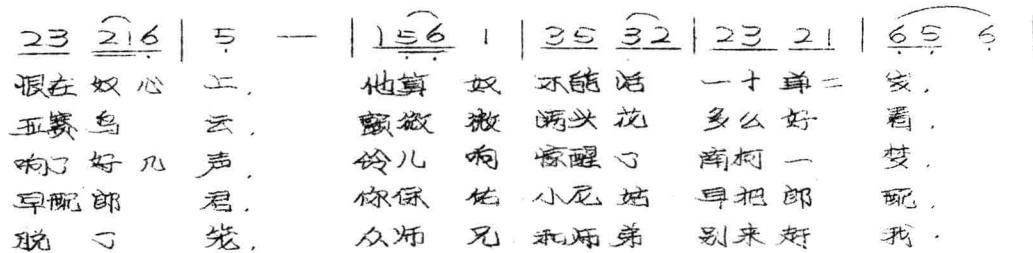 23 216 | 5 — | 156 1 | 35 32 | 23 21 | 65 6 |
恨在奴心上, 他算奴不能活一十单二岁,
赛乌云, 颤微微满头花多么好看,
响了好几声, 铃儿响惊醒了南柯一梦,
早配郎君, 你保佑小尼姑早把郎配,
脱了 众师兄和师弟别来 我.